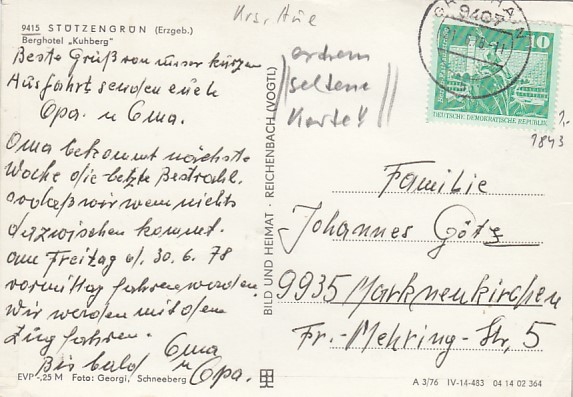 9415 STÜTZENGRÜN (Erzgeb.)
Berghotel „Kuhberg"
Beste Grüße von unser kurzen
Ausfahrt senden euch
Opa. u Oma.
Oma bekommt nächste
Woche die letzte Bestrahl.
sodaß wir wenn nichts
dazwischen kommt.
am Freitag d. 30. 6. 78
vormittag fahren werden.
Wir werden mit dem
Zug fahren.
Bis bald Oma
u Opa.
EVP -,25 M Foto: Georgi, Schneeberg
BILD UND HEIMAT · REICHENBACH (VOGTL)
Krs. Aue
seltene
Karte!
9407
10
DEUTSCHE DEMOKRATISCHE REPUBLIK
1,-
1843
Familie
Johannes Götz
9935 Markneukirchen
Fr.-Mehring-Str, 5
A 3/76 IV-14-483 04 14 02 364